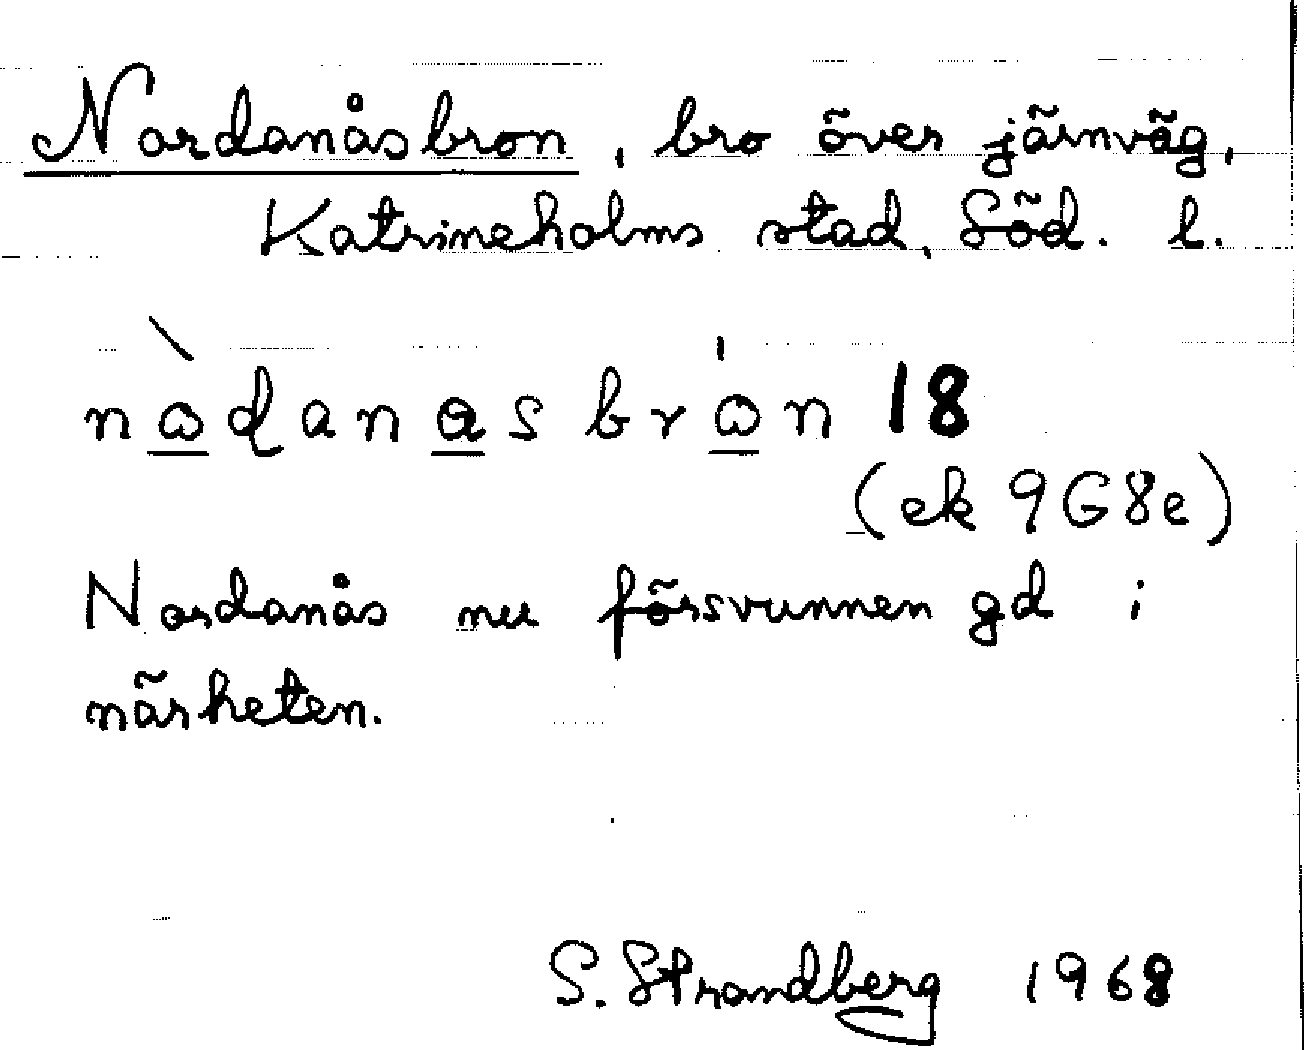 Nordanåsbron, bro över järnväg,
Katrineholms stad, Söd. l.
nὼɖanas brω´n 18
(ek 9G8e)
Nordanås nu försvunnen gd i
närheten.
S. Strandberg 1968